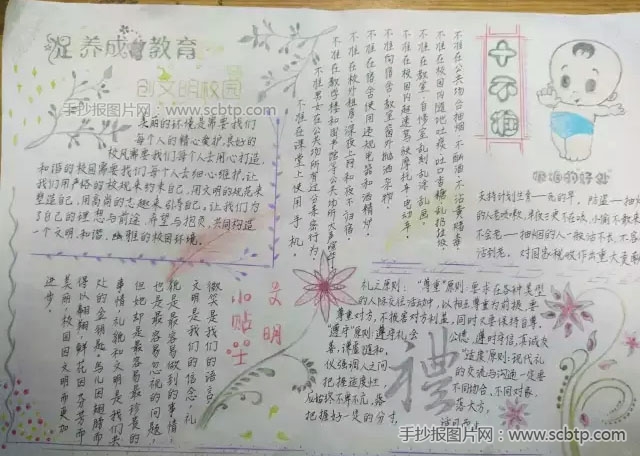 促养成教育
创文明校园
手抄报图片网:www.scbtp.com
美丽的环境是需要我们
每个人的精心爱护,良好的
校风需要我们每个人去用心打造,
和谐的校园需要我们每个人去细心维护,让
我们用严格的校规来约束自己,用文明的规范来
塑造自己,用高尚的志趣来引导自己。让我们为
了自己的理想与前途,希望与抱负,共同构造
一个文明,和谐,幽雅的校园环境。
不准在公共场合抽烟,不酗酒,不沾黄赌毒。
不准在校园内随地吐痰,吐口香糖,乱扔垃圾
不准在教室,自修室乱刻乱涂乱画。
不准在校园内超速驾驶摩托车电动车。
不准向宿舍、教室窗外抛洒杂物。
不准在宿舍使用违规电器和酒精炉。
不准在校外租房,深夜上网和夜不归宿。
不准在教学楼和图书馆等公共场所大声喧哗
不准男女在公共场所有过分亲密行为
不准在课堂上使用手机。
十不准
吸烟的好处
支持计划生育—死的早,防盗—抽烟
不会老—抽烟的人一般活不长,不容
活到老,对国家税收作出重大贡献
文明
小贴士
微笑是我们的语言,
文明是我们的信念,礼
貌是最容易做到的事情,
也是最容易忽视的问题,
但她却是最容易最珍贵的
事情,礼貌和文明是我们共
处的金钥匙。鸟儿因翅膀而
得以翱翔,鲜花因芬芳而
美丽,校园因文明而更加
进步。
礼之原则:“尊重”原则:要求在各种类型
的人际交往活动中,以相互尊重为前提,要
尊重对方,不损害对方利益,同时又要保持自尊。
“遵守”原则:遵守礼会
公德,遵时守信,真诚友
善,谦虚随和。
“适度”原则:现代礼
仪强调人之间
的交流与沟通一定要
把握适度性,
不同场合,不同对象,
应始终不卑不亢,落
落大方,
把握好一定的分寸,
禮
手抄报图片网:www.scbtp.com